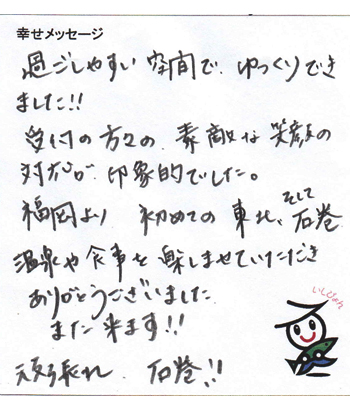 幸せメッセージ
過ごしやすい空間で、ゆっくりでき
ました!!
受付の方々の、素敵な笑顔の
対応が、印象的でした。
福岡より 初めての東北、そして石巻
温泉や食事を楽しませていただき
ありがとうございました
また来ます!!
頑張れ、石巻!!
いしぴょん